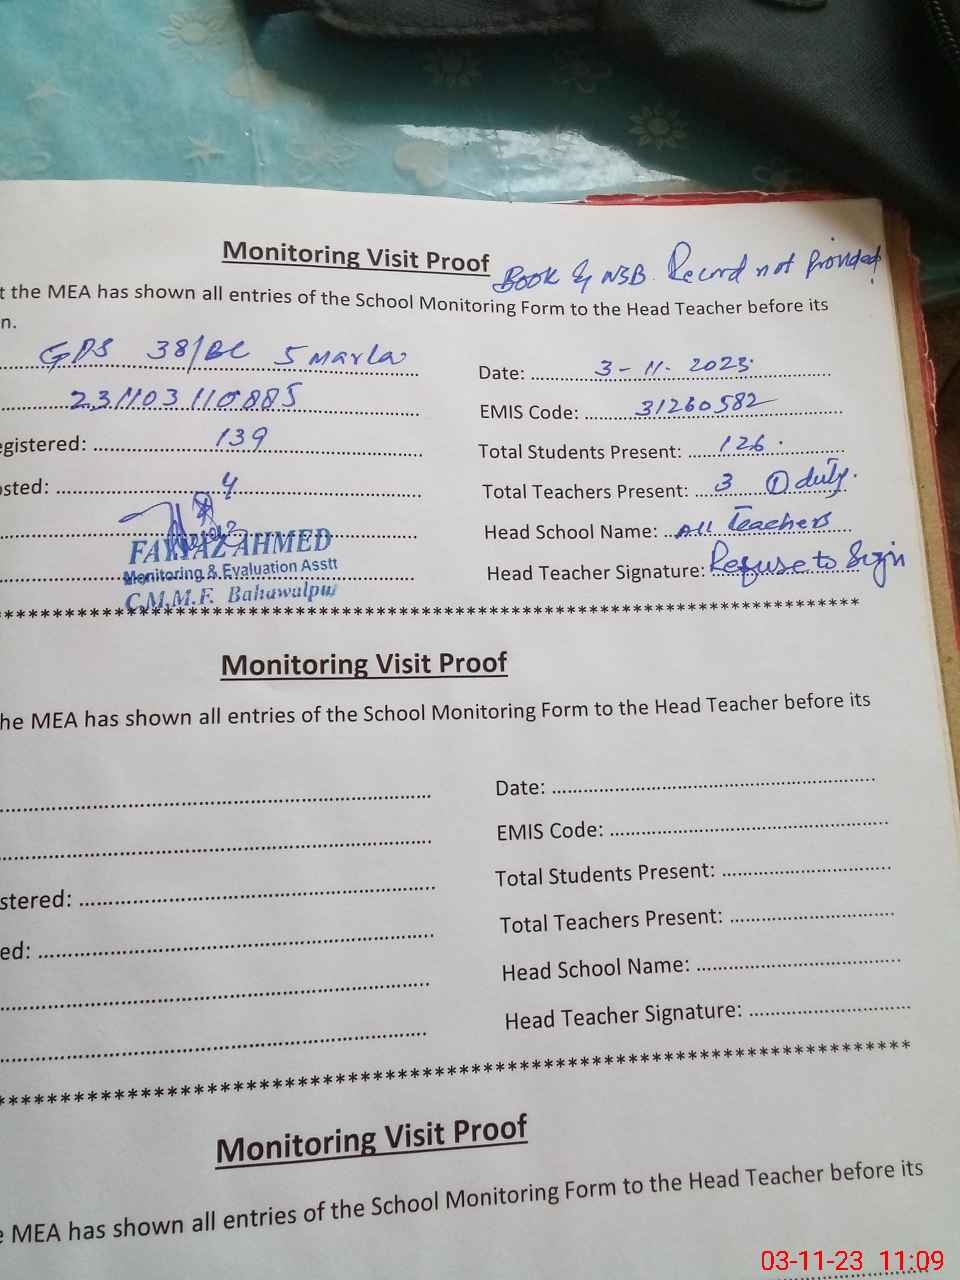 Monitoring Visit Proof
Book & NSB. Record not Provided
t the MEA has shown all entries of the School Monitoring Form to the Head Teacher before its
n.
GPS 38/BC 5 Marla
Date: 3-11-2023
231103110885
EMIS Code: 31260582
egistered: 139
Total Students Present: 126
osted: 4
Total Teachers Present: 3 ① duty.
Head School Name: All Teachers
FAYYAZ AHMED
Monitoring & Evaluation Asstt
C.M.M.F. Bahawalpur
Head Teacher Signature: Refuse to Sign
************************************************
Monitoring Visit Proof
he MEA has shown all entries of the School Monitoring Form to the Head Teacher before its
Date:
EMIS Code:
stered:
Total Students Present:
ed:
Total Teachers Present:
Head School Name:
Head Teacher Signature:
************************************************
Monitoring Visit Proof
e MEA has shown all entries of the School Monitoring Form to the Head Teacher before its
03-11-23 11:09